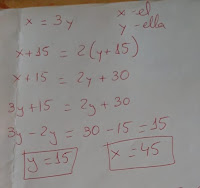 x = 3y
x - el
y - ella
x+15 = 2(y+15)
x+15 = 2y+30
3y+15 = 2y+30
3y-2y = 30-15=15
y=15
x=45